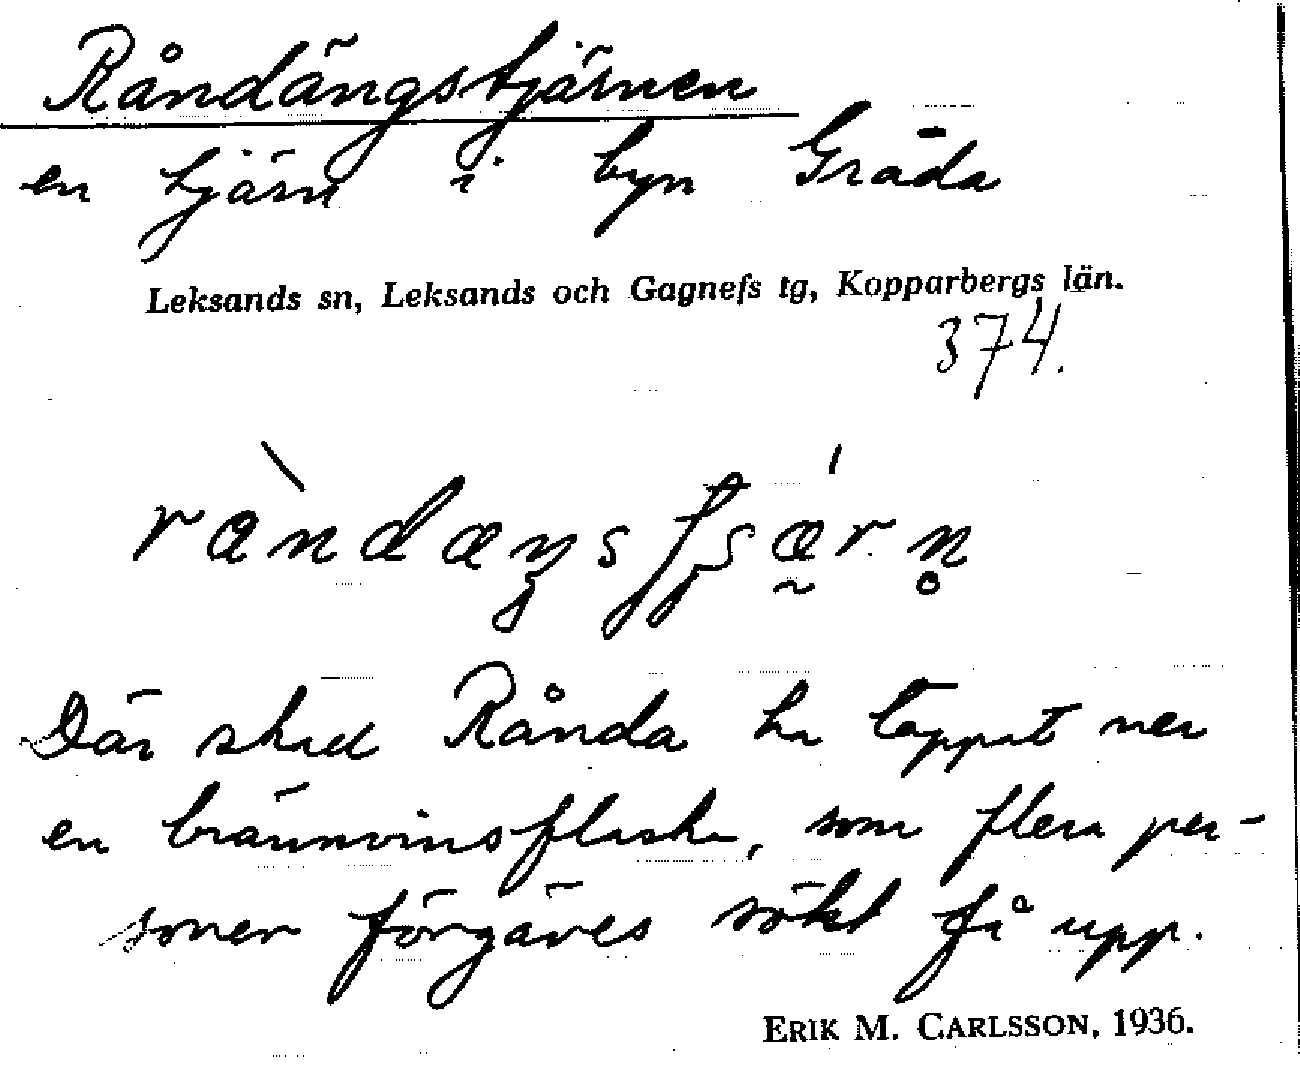 Råndängstjärnen
en tjärn i byn Gråda
Leksands sn, Leksands och Gagnefs tg, Kopparbergs län.
374.
Där skall Rånda ha tappat ner
en brännvinsflaska, som flera per-
soner förgäves sökt få upp.
ERIK M. CARLSSON, 1936.